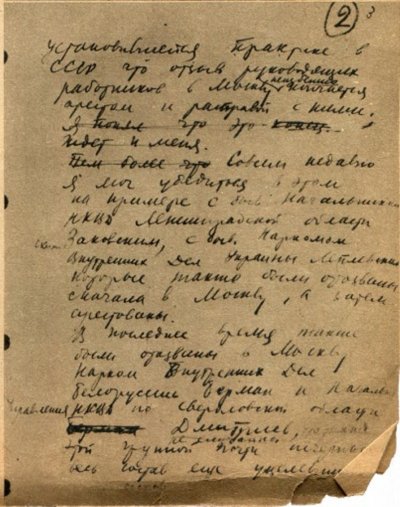 2 3
установившейся практике в
СССР что отзыв руководящих
неизбежно
работников в Москву кончается
арестом и расправой с ними.
Я понял что это конец.
ждет и меня.
Тем более что Совсем недавно
я мог убедиться в этом
на примере с быв. Начальником
НКВД Ленинградской области
Заковским, с быв. Наркомом
Внутренних Дел Украины Леплевским
которые также были отозваны
сначала в Москву, а затем
арестованы.
В последнее время также
были отозваны в Москву
Нарком Внутренних Дел
Белоруссии Берман и Начальник
Управления НКВД по Свердловской области
Берман Дмитриев,
этой группой почти
весь состав еще уцелевших